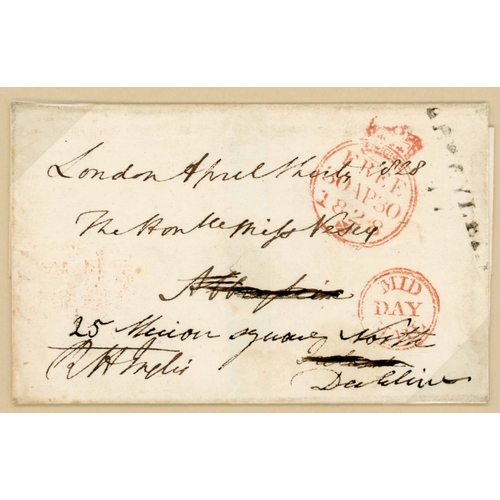 London April thirty 1828
FREE
30 AP 30
1828
The Honble Miss Vesey
Abbyleix
MID
DAY
25 Merion square North
R H Inglis
Dublin